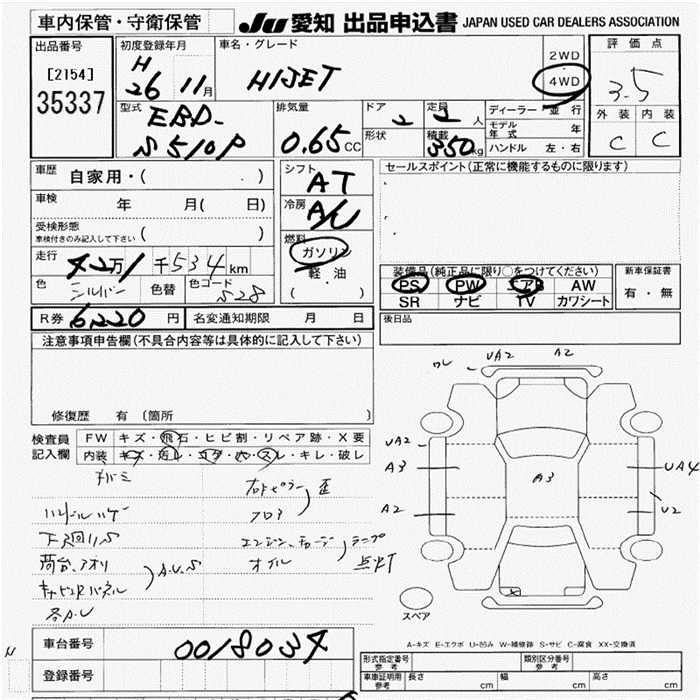 車内保管・守衛保管
JU 愛知 出品申込書 JAPAN USED CAR DEALERS ASSOCIATION
出品番号
[2154]
35337
初度登録年月
H 26 11月
車名・グレード
HIJET
2WD
4WD
評価点
3.5
外装 内装
C C
型式
EBD-
S510P
排気量
0.65 CC
ドア
2
定員
2 人
形状
積載
350 kg
ディーラー・並行
モデル年式 年
ハンドル 左・右
車歴
自家用・( )
車検
年 月( 日)
受検形態
車検付きのみ記入して下さい ( )
走行
42万 1千534km
色
シルバー
色替
色コード
S28
シフト
AT
冷房
A/C
燃料
ガソリン
軽油
( )
セールスポイント(正常に機能するものに限ります)
装備品(純正品に限り○をつけてください)
PS PW エアB AW
SR ナビ TV カワシート
新車保証書
有・無
R券 6220 円
名変通知期限 月 日
後日品
注意事項申告欄(不具合内容等は具体的に記入して下さい)
修復歴 有〔箇所 〕
検査員記入欄
FW キズ・飛石・ヒビ割・リペア跡・X要
内装 キズ・汚レ・コゲ・穴・スレ・キレ・破レ
ハンドルハゲ
下廻りS
荷台、アオリ
キャビンRパネル
A.U.S
各A.U
フロア
歪
オイル
ランプ
点灯
UA2
A2
UA2
A3
A2
A3
UA4
U2
スペア
A-キズ E-エクボ U-凹み W-補修跡 S-サビ C-腐食 XX-交換済
車台番号
0018034
登録番号
形式指定番号 参考
類別区分番号 参考
車庫証明用 参考
長さ cm
幅 cm
高さ cm